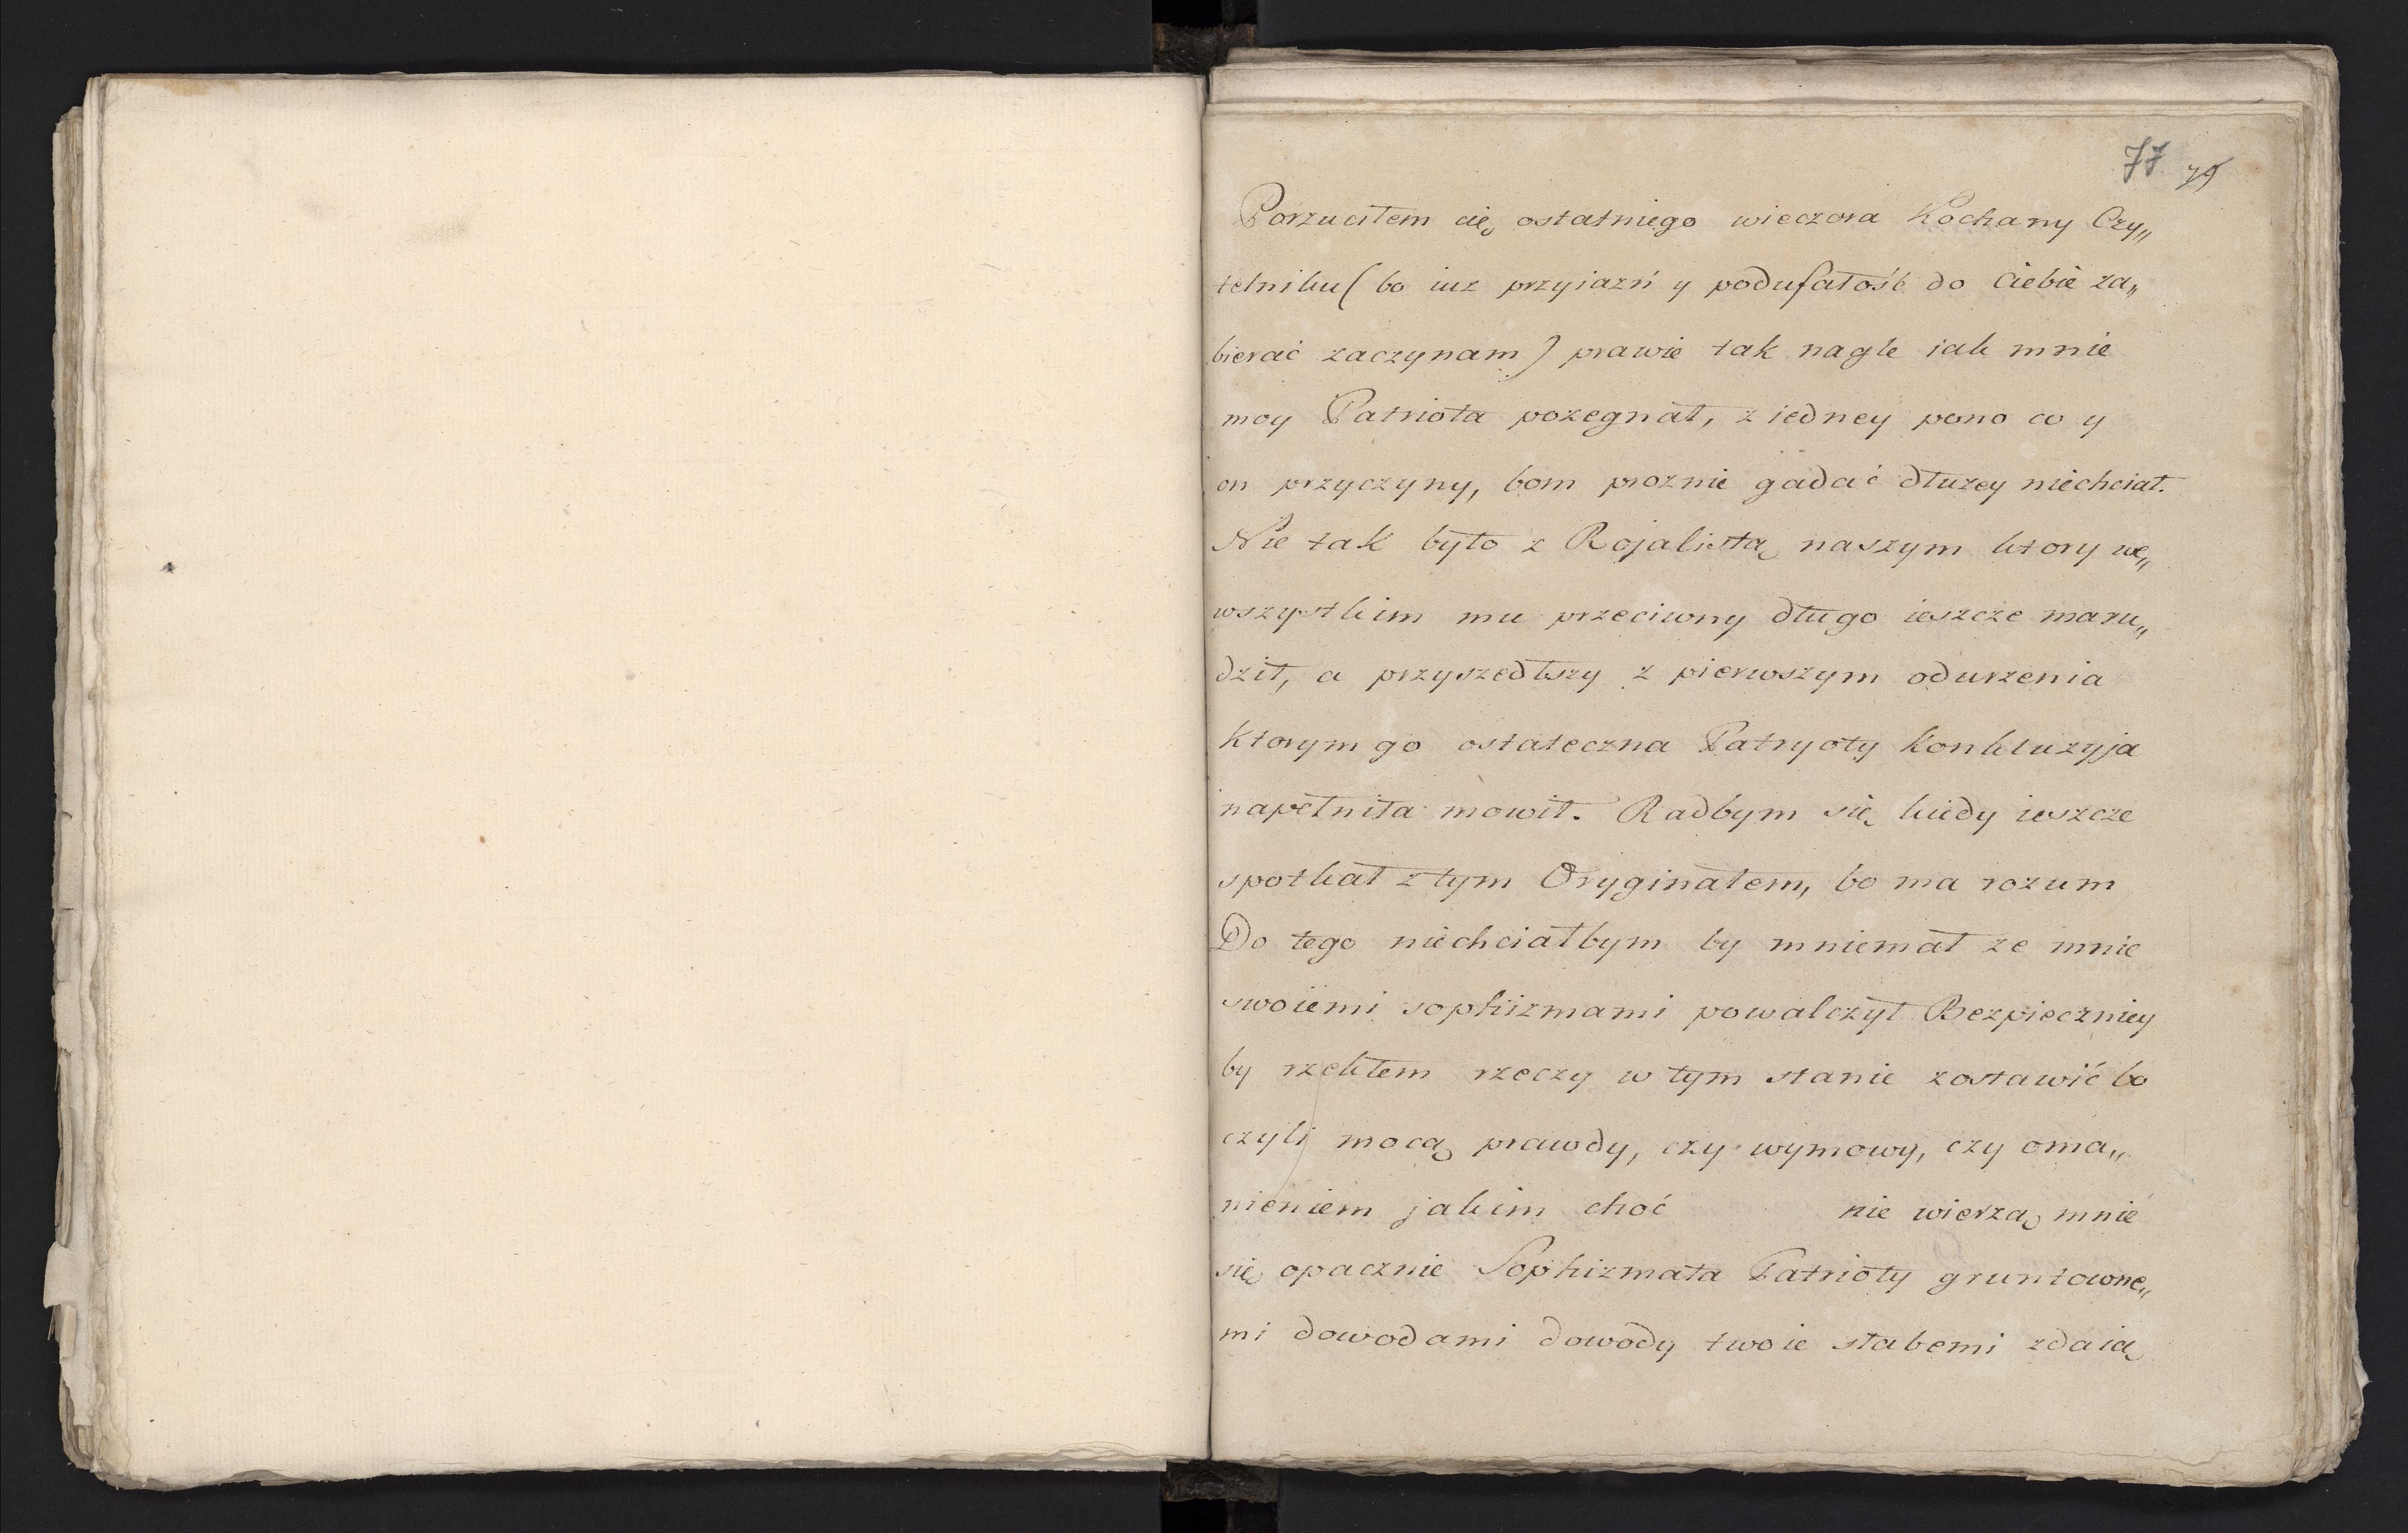 77 75
Porzuciłem cię ostatniego wieczora Kochany Czy„
telniku ( bo iuz przyiazń y podufałość do Ciebie za„
bierać zaczynam ) prawie tak nagle iak mnie
moy Patriota pozegnał, z iedney pono co y
on przyczyny, bom proznie gadać dłuzey niechciał.
Nie tak było z Rojalistą naszym ktory we„
wszystkim mu przeciwny długo ieszcze maru„
dził, a przyszedłszy z pierwszym odurzenia
ktorym go ostateczna Patryoty Konkluzyja
napełniła mowił. Radbym się kiedy ieszcze
spotkał z tym Oryginałem, bo ma rozum
Do tego niechciałbym by mniemał ze mnie
swoiemi sophizmami powalczył Bezpieczniey
by rzekłem rzeczy w tym stanie zostawić bo
czyli mocą prawdy, czy wymowy, czy oma„
nieniem jakim choć nie wierzą mnie
się opacznie Sophizmata Patrioty gruntowne„
mi dowodami dowody twoie słabemi zdaią